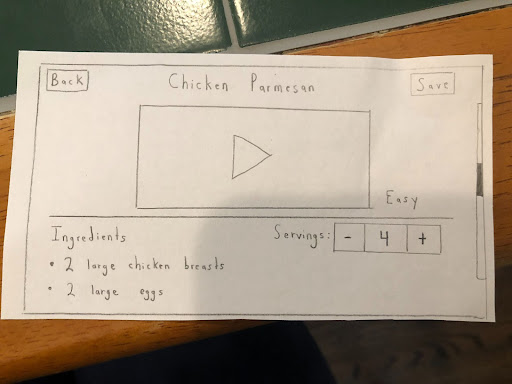 Back Chicken Parmesan Save
Easy
Ingredients Servings: - 4 +
• 2 large chicken breasts
• 2 large eggs